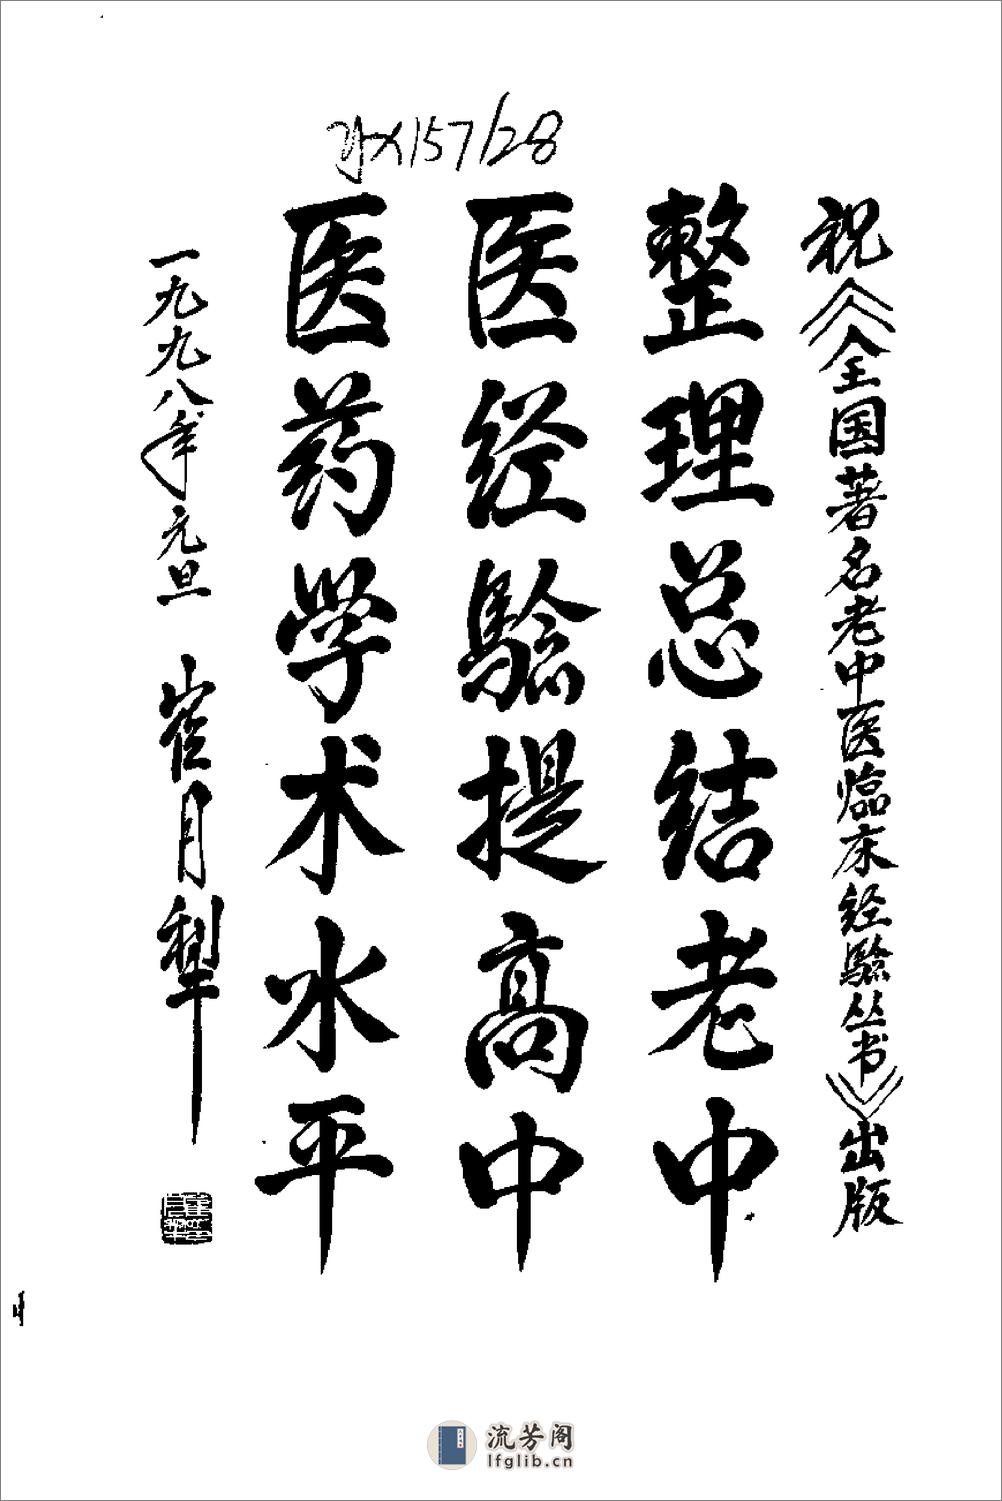 祝《全国著名老中医临床经验丛书》出版
整理总结老中
医经验提高中
医药学术水平
一九九八年元旦 崔月犁
X157/28
流芳阁
lfglib.cn